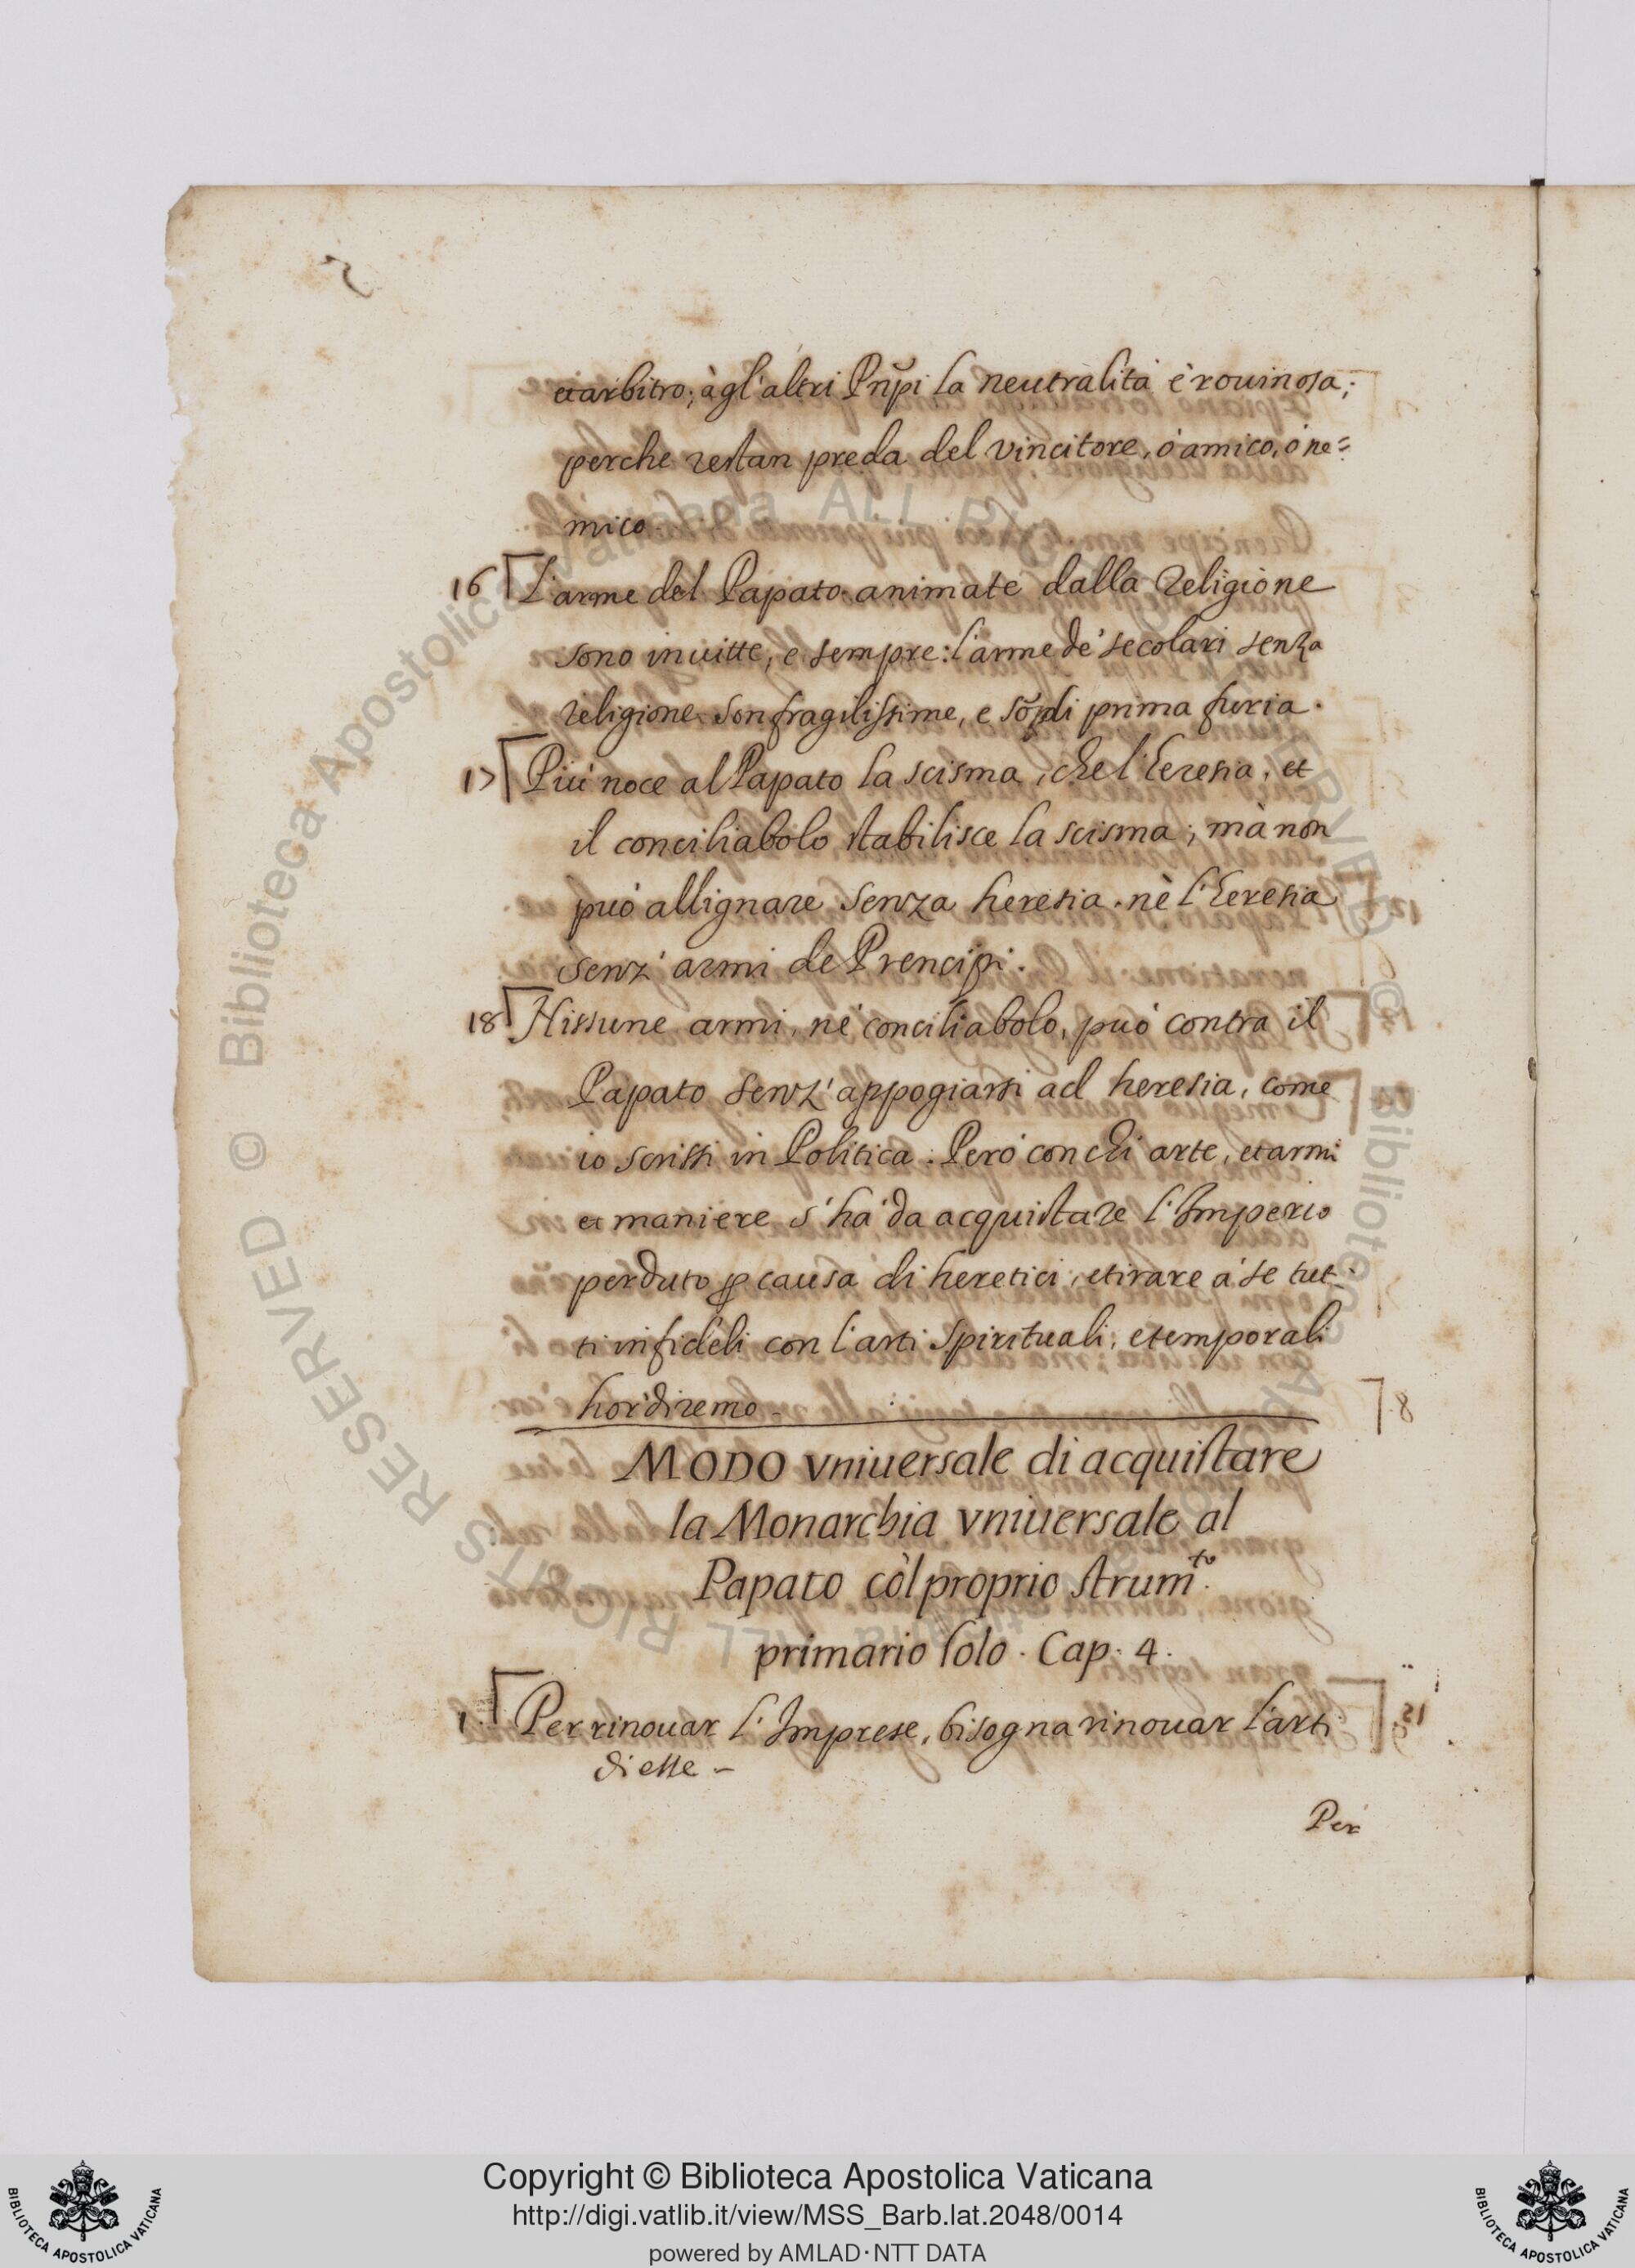 et arbitro; à gl'altri Pñpi la neutralità è rouinosa;
perche restan preda del vincitore, ò amico, ò ne=
mico.
16 L'arme del Papato animate dalla religione
sono inuitte, e sempre: l'arme de' secolari senza
religione son fragilissime, e sõ di prima furia.
17 Più noce al Papato la scisma, che l'heresia, et
il conciliabolo stabilisce la scisma; mà non
può allignare senza heresia. nè l'heresia
senz'armi de Prencipi.
18 Nissune armi, nè conciliabolo, può contra il
Papato senz'appogiarsi ad heresia, come
io scrissi in Politica. Però con chi arte, et armi
et maniere s'hà da acquistare l'Imperio
perduto ꝑ causa di heretici, et tirare à se tut-
ti infideli con l'arti spirituali, et temporali
hor diremo.
MODO vniuersale di acquistare
la Monarchia vniuersale al
Papato còl proprio strum.to
primario solo. Cap. 4.
1. Per rinouar l'Imprese, bisogna rinouar l'arti
di esse -
Per
© Biblioteca Apostolica Vaticana ALL RIGHTS RESERVED © Biblioteca Apostolica Vaticana ALL RIGHTS RESERVED
Copyright © Biblioteca Apostolica Vaticana
http://digi.vatlib.it/view/MSS_Barb.lat.2048/0014
powered by AMLAD·NTT DATA
BIBLIOTECA APOSTOLICA VATICANA
BIBLIOTECA APOSTOLICA VATICANA